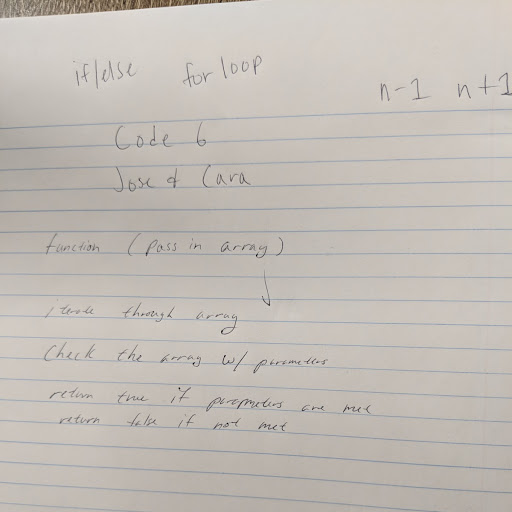 if/else for loop
n-1 n+1
Code 6
Jose & Cara
function (pass in array)
iterate through array
Check the array w/ parameters
return true if parameters are met
return false if not met